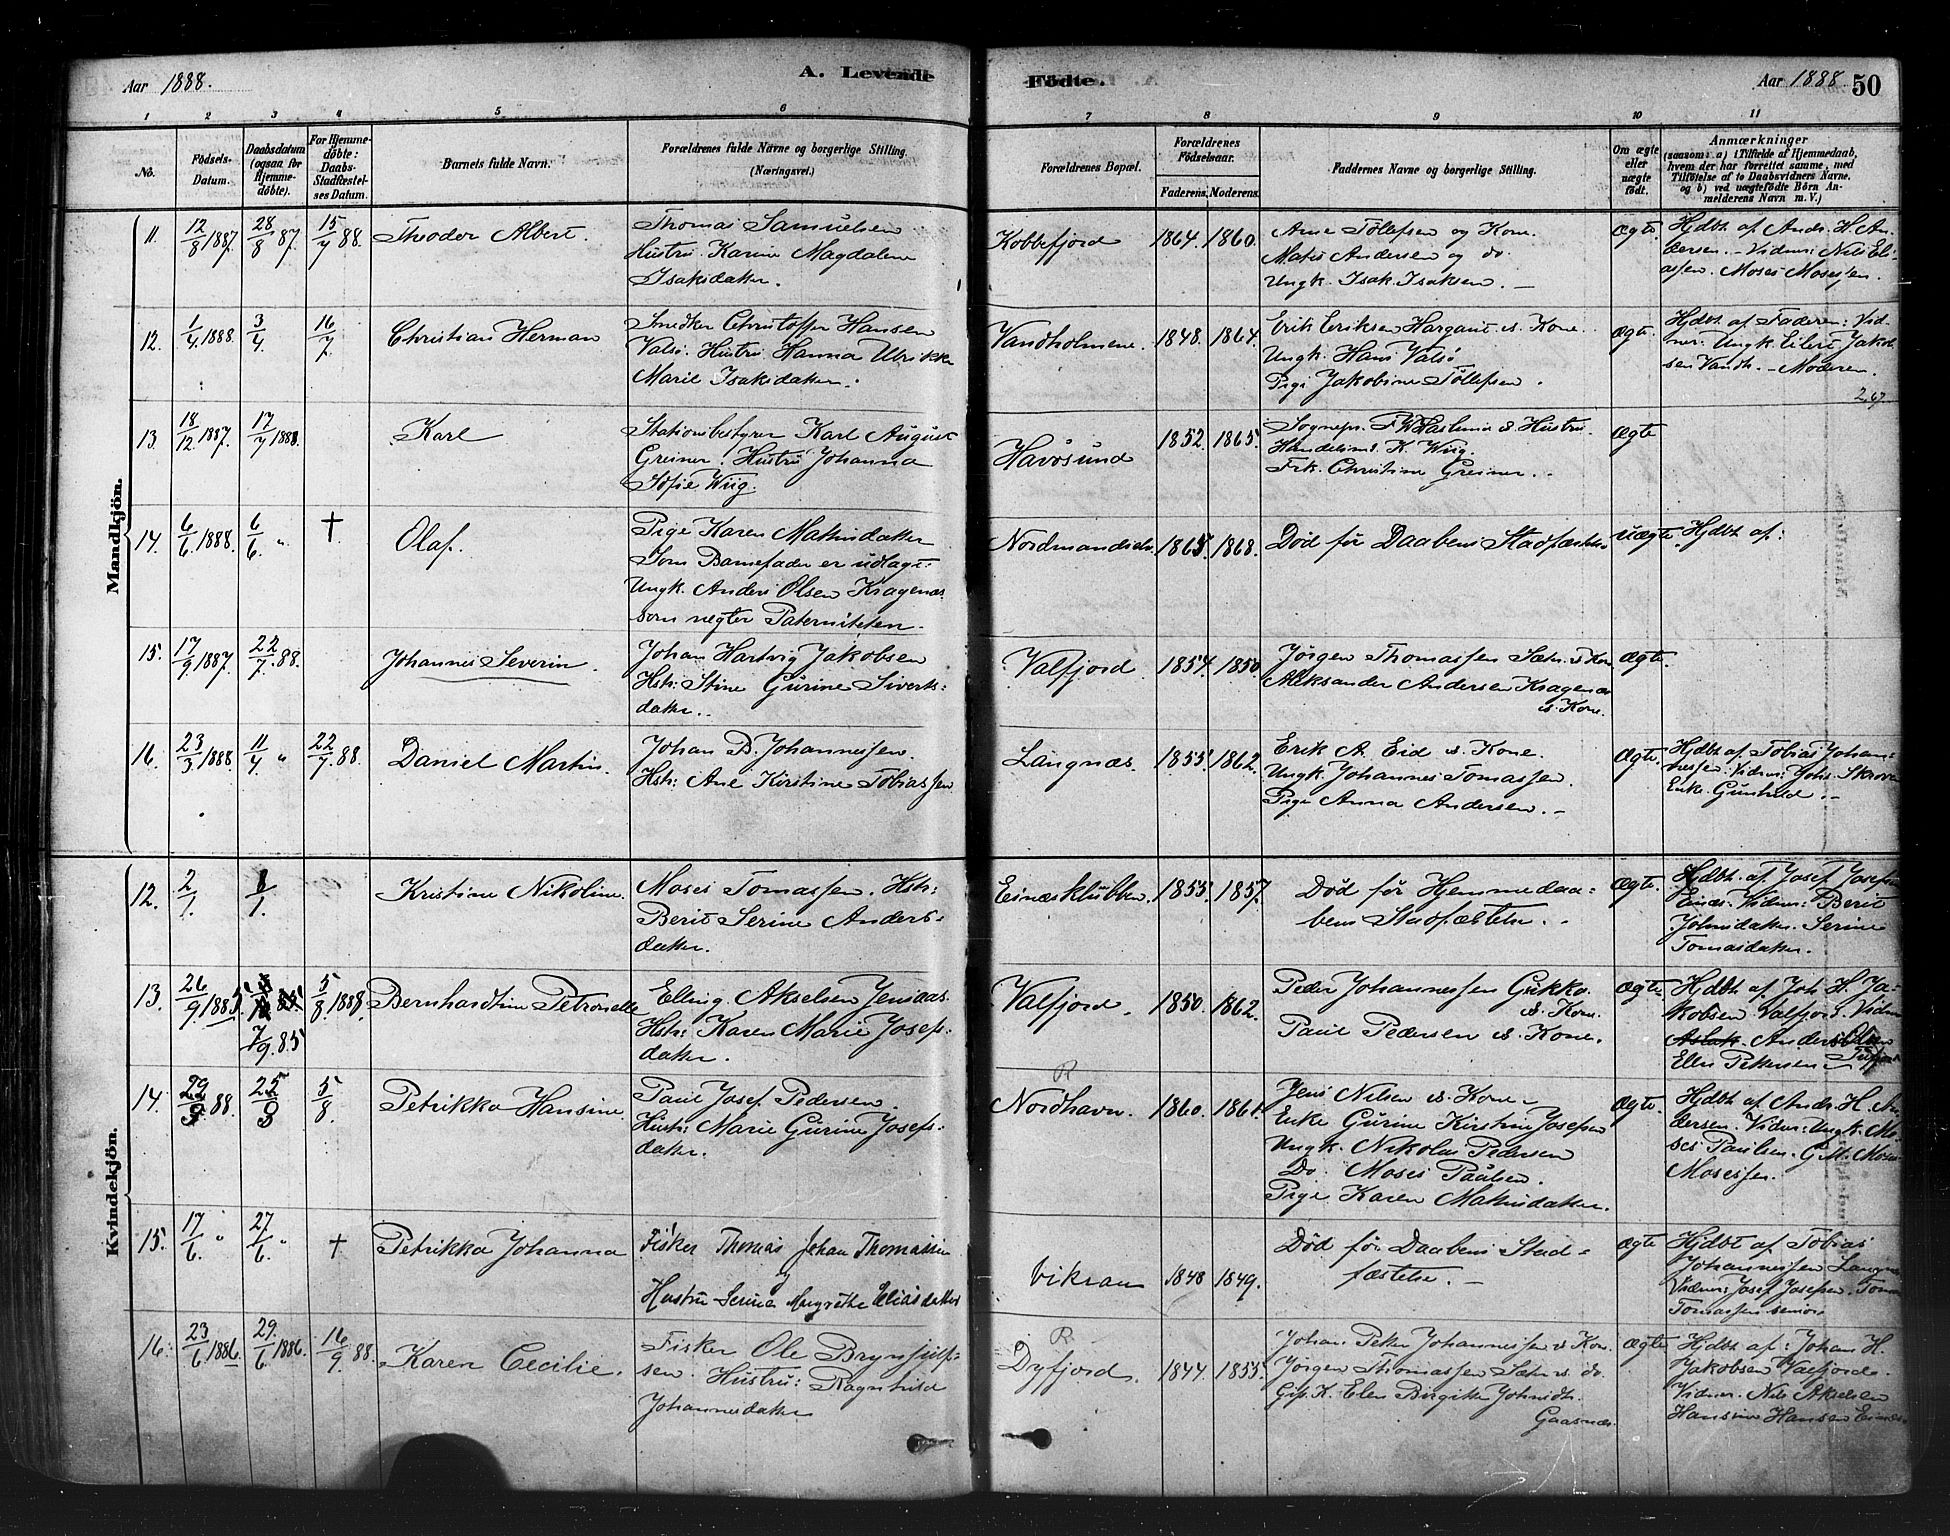 Aar 1888.
A. Levende
Födte.
Aar 1888
50
1 2 3 4 5 6 7 8 9 10 11
No.
Födsels-Datum.
Daabsdatum (ogsaa for Hjemme-döbte).
For Hjemme-döbte: Daabs-Stadfæstel-ses Datum.
Barnets fulde Navn.
Forældrenes fulde Navne og borgerlige Stilling. (Næringsvei.)
Forældrenes Bopæl.
Forældrenes Födselsaar.
Faderens. Moderens.
Faddernes Navne og borgerlige Stilling.
Om ægte eller uægte födt.
Anmærkninger
(saasom: a) i Tilfælde af Hjemmedaab,
hvem der har forrettet samme, med
Tilföielse af to Daabsvidners Navne,
og b) ved uægtefödte Börn An-
melderens Navn m. V.)
Mandkjön.
11. 12/8 1887. 28/8 87. 15/7 88. Theodor Albert.
Thomas Samuelsen
Hustru Karine Magdalene
Isaksdatter.
Kobbefjord 1864. 1860.
Arne Tollefsen og Kone.
Mats Andersen og do.
Ungk. Isak Isaksen.
Ægte.
Hjdbt af Andr. H. An-
dersen. Vidner: Nils Eli-
assen. Moses Mosessen.
12. 1/4 1888. 3/4. 16/7. Christian Herman
Snedker Christoffer Hansen
Valsö. Hustru Hanna Ulrikke
Marie Isaksdatter.
Vandholmene. 1848. 1864.
Erik Eriksen Hargaut &. Kone.
Ungk. Hans Valsö
Pige Jakobine Tollefsen.
Ægte.
Hjdbt af Faderen: Vid-
ner: Ungk. Eilert Jakob-
sen Vandh. - Moderen.
2,67.
13 18/12 1887. 17/7 1888. Karl
Stationsbestyrer Karl August
Greiner. Hustru Johanna
Sofie Wiig.
Havösund 1852 1865.
Sognepr. &. Hustru.
Handelsm. K. Wiig.
Frk. Christine Greiner.
Ægte
14. 6/6 1888. 6/6 " † Olaf.
Pige Karen Mathisdatter
Som Barnefader er udlagt:
Ungk. Anders Olsen Kragenæs
som negter Paterniteten.
1865. 1868.
Död för Daabens Stadfæstelse
uægte.
Hjdbt af:
15. 17/9 1887. 22/7 88. Johannes Severin.
Johan Hartvig Jakobsen
Hstr: Stine Gurine Siverts-
datter.
Valfjord. 1854. 1850.
Jörgen Thomassen Sætn. & Kone
Aleksander Andersen Kragenæs
&. Kone.
Ægte.
16. 23/3 1888. 11/4 " 22/7 88. Daniel Martin.
Johan B. Johannessen.
Hstr: Ane Kirstine Tobiassen
Langnæs. 1855. 1862.
Erik A. Eid &. Kone.
Ungk. Johannes Tomassen
Pige Anna Andersen.
Ægte.
Hjdbt af Tobias Johan-
nessen. Vidner: Johs. Skroven
Enke Gunhild.
Kvindekjön.
12. 2/1. 8/1. Kristine Nikoline.
Moses Tomassen. Hstr:
Berit Serine Anders-
datter.
Einæsklubben. 1855. 1857.
Död för Hjemmedaa-
bens Stadfæstelse.
Ægte.
Hjdbt. af Josef Josefsen
Einæs. Vidner: Berit
Johnsdatter. Serine
Tomasdatter.
13. 26/9 1885. 7/9. 85 5/8 1888. Bernhardtine Petronelle
Elling Akselsen Jensaas.
Hstr: Karen Marie Josefs-
datter.
Valfjord. 1850. 1862.
Peder Johannessen Gukko
&. Kone.
Paul Pedersen &. Kone.
Ægte.
Hjdbt. af Joh. H. Ja-
kobsen Valfjord. Vidner
Aslak Anders Olsen
Ellen Pettersen Tufjord
14. 29/3 88. 25/8 5/8 Petrikka Hansine.
Paul Josef Pedersen.
Hustr: Marie Gurine Josefs-
datter.
R
Nordhavn. 1860. 1861.
Jens Nilsen &. Kone.
Enke Gurine Kirstine Josefsen
Ungk. Nikolai Pedersen
Do. Moses Paulsen.
Pige Karen Mathisdatter.
Ægte.
Hjdbt af Andr. H. An-
dersen. Vidner: Ungk. Mo-
ses Paulsen. G. M. Moses
Mosessen.
15. 17/6 " 27/6 " † Petrikka Johanna
Fisker Thomas Johan Thomassen
Hustru Serine Margrethe Eliasdatter
Vikran 1848 1849.
Död för Daabens Stad-
fæstelse.
Ægte
Hjdbt af Tobias
Johannessen Langnæs
Vidner: Josef Josefsen. Tomas
Tomassen senior.
16. 23/6 1886. 29/6 1886. 16/9 88. Karen Cecilie.
Fisker Ole Brynjulf-
sen. Hustru: Ragnhild
Johannesdatter
R.
Dyfjord. 1844. 1855.
Johan Petter Johannessen &. Kone.
Jörgen Thomassen Sætn. &. do.
Gift K. Elen Birgitte Johnsdtr.
Gaasnæs.
Ægte
Hjdbt af: Johan H.
Jakobsen Valfjord.
Vidner. Nils Akselsen
Hansine Hansen Einæs